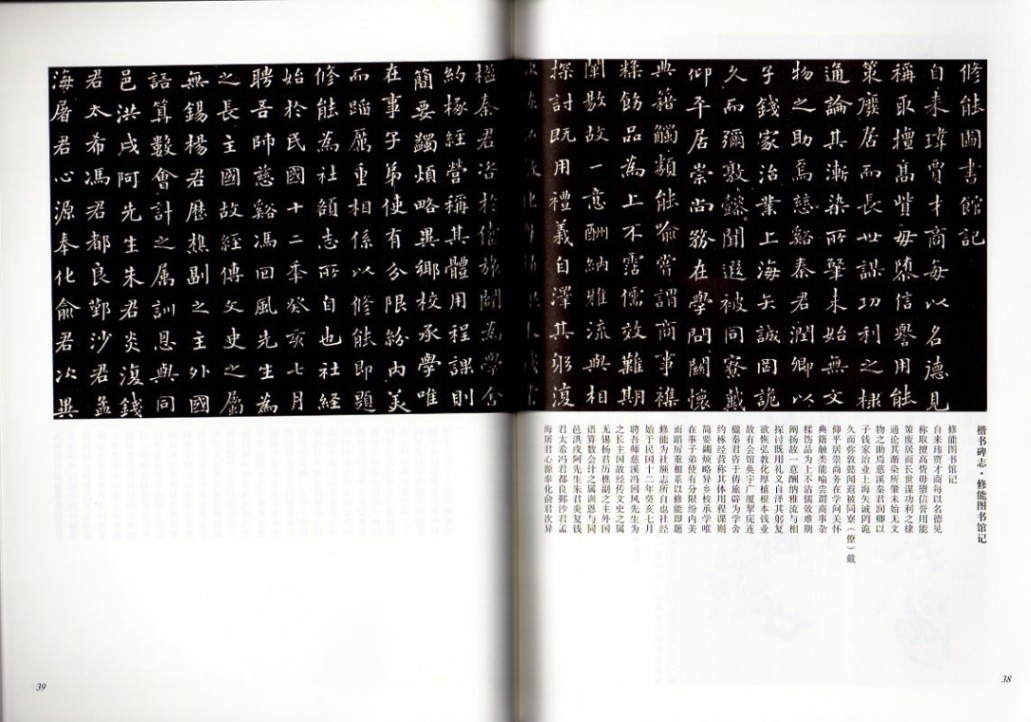 修能圖書館記
自來瑋賈才商每以名德見
稱取擅高貲毋隳信譽用能
策廢居而長世謀功利之棣
通論其漸染所肇未始無文
物之助焉慈谿秦君潤卿以
子錢家治業上海矢誠罔詭
久而彌敦懿聞遐被同寮戴
仰平居崇尚務在學問關懷
典籍觸類能喻嘗謂商事襍
糅飭品為上不霑儒效難期
闡敭故一意酬納雅流與相
探討既用禮義自澤其躬復
楹秦君咨於儔旅闢為學舍
約椓經營稱其體用程課則
簡要蠲煩略異鄉校承學唯
在事子弟使有分限紛內美
而蹈厲重相係以修能即題
修能為社額志所自也社經
始於民國十二年癸亥七月
聘吾師慈谿馮回風先生為
之長主國故經傳文史之屬
無錫楊君歷樵副之主外國
語算數會計之屬訓恩與同
邑洪戌阿先生朱君炎復錢
君太希馮君都良鄞沙君孟
海屠君心源奉化俞君次異
楷书碑志·修能图书馆记
修能图书馆记
自来玮贾才商每以名德见
称取擅高赀毋隳信誉用能
策废居而长世谋功利之棣
通论其渐染所肇未始无文
物之助焉慈溪秦君润卿以
子钱家治业上海矢诚罔诡
久而弥敦懿闻遐被同寮（僚）戴
仰平居崇尚务在学问关怀
典籍触类能喻尝谓商事杂
糅饬品为上不沾儒效难期
阐扬故一意酬纳雅流与相
探讨既用礼义自泽其躬复
欲恢弘教化厚植根本钱业
故有会馆奂宇广厦掔庑连
楹秦君咨于俦旅辟为学舍
约椓经营称其体用程课则
简要蠲烦略异乡校承学唯
在事子弟使有分限纷内美
而蹈厉重相系以修能即题
修能为社额志所自也社经
始于民国十二年癸亥七月
聘吾师慈溪冯回风先生为
之长主国故经传文史之属
无锡杨君历樵副之主外国
语算数会计之属训恩与同
邑洪戌阿先生朱君炎复钱
君太希冯君都良鄞沙君孟
海屠君心源奉化俞君次异
39
38